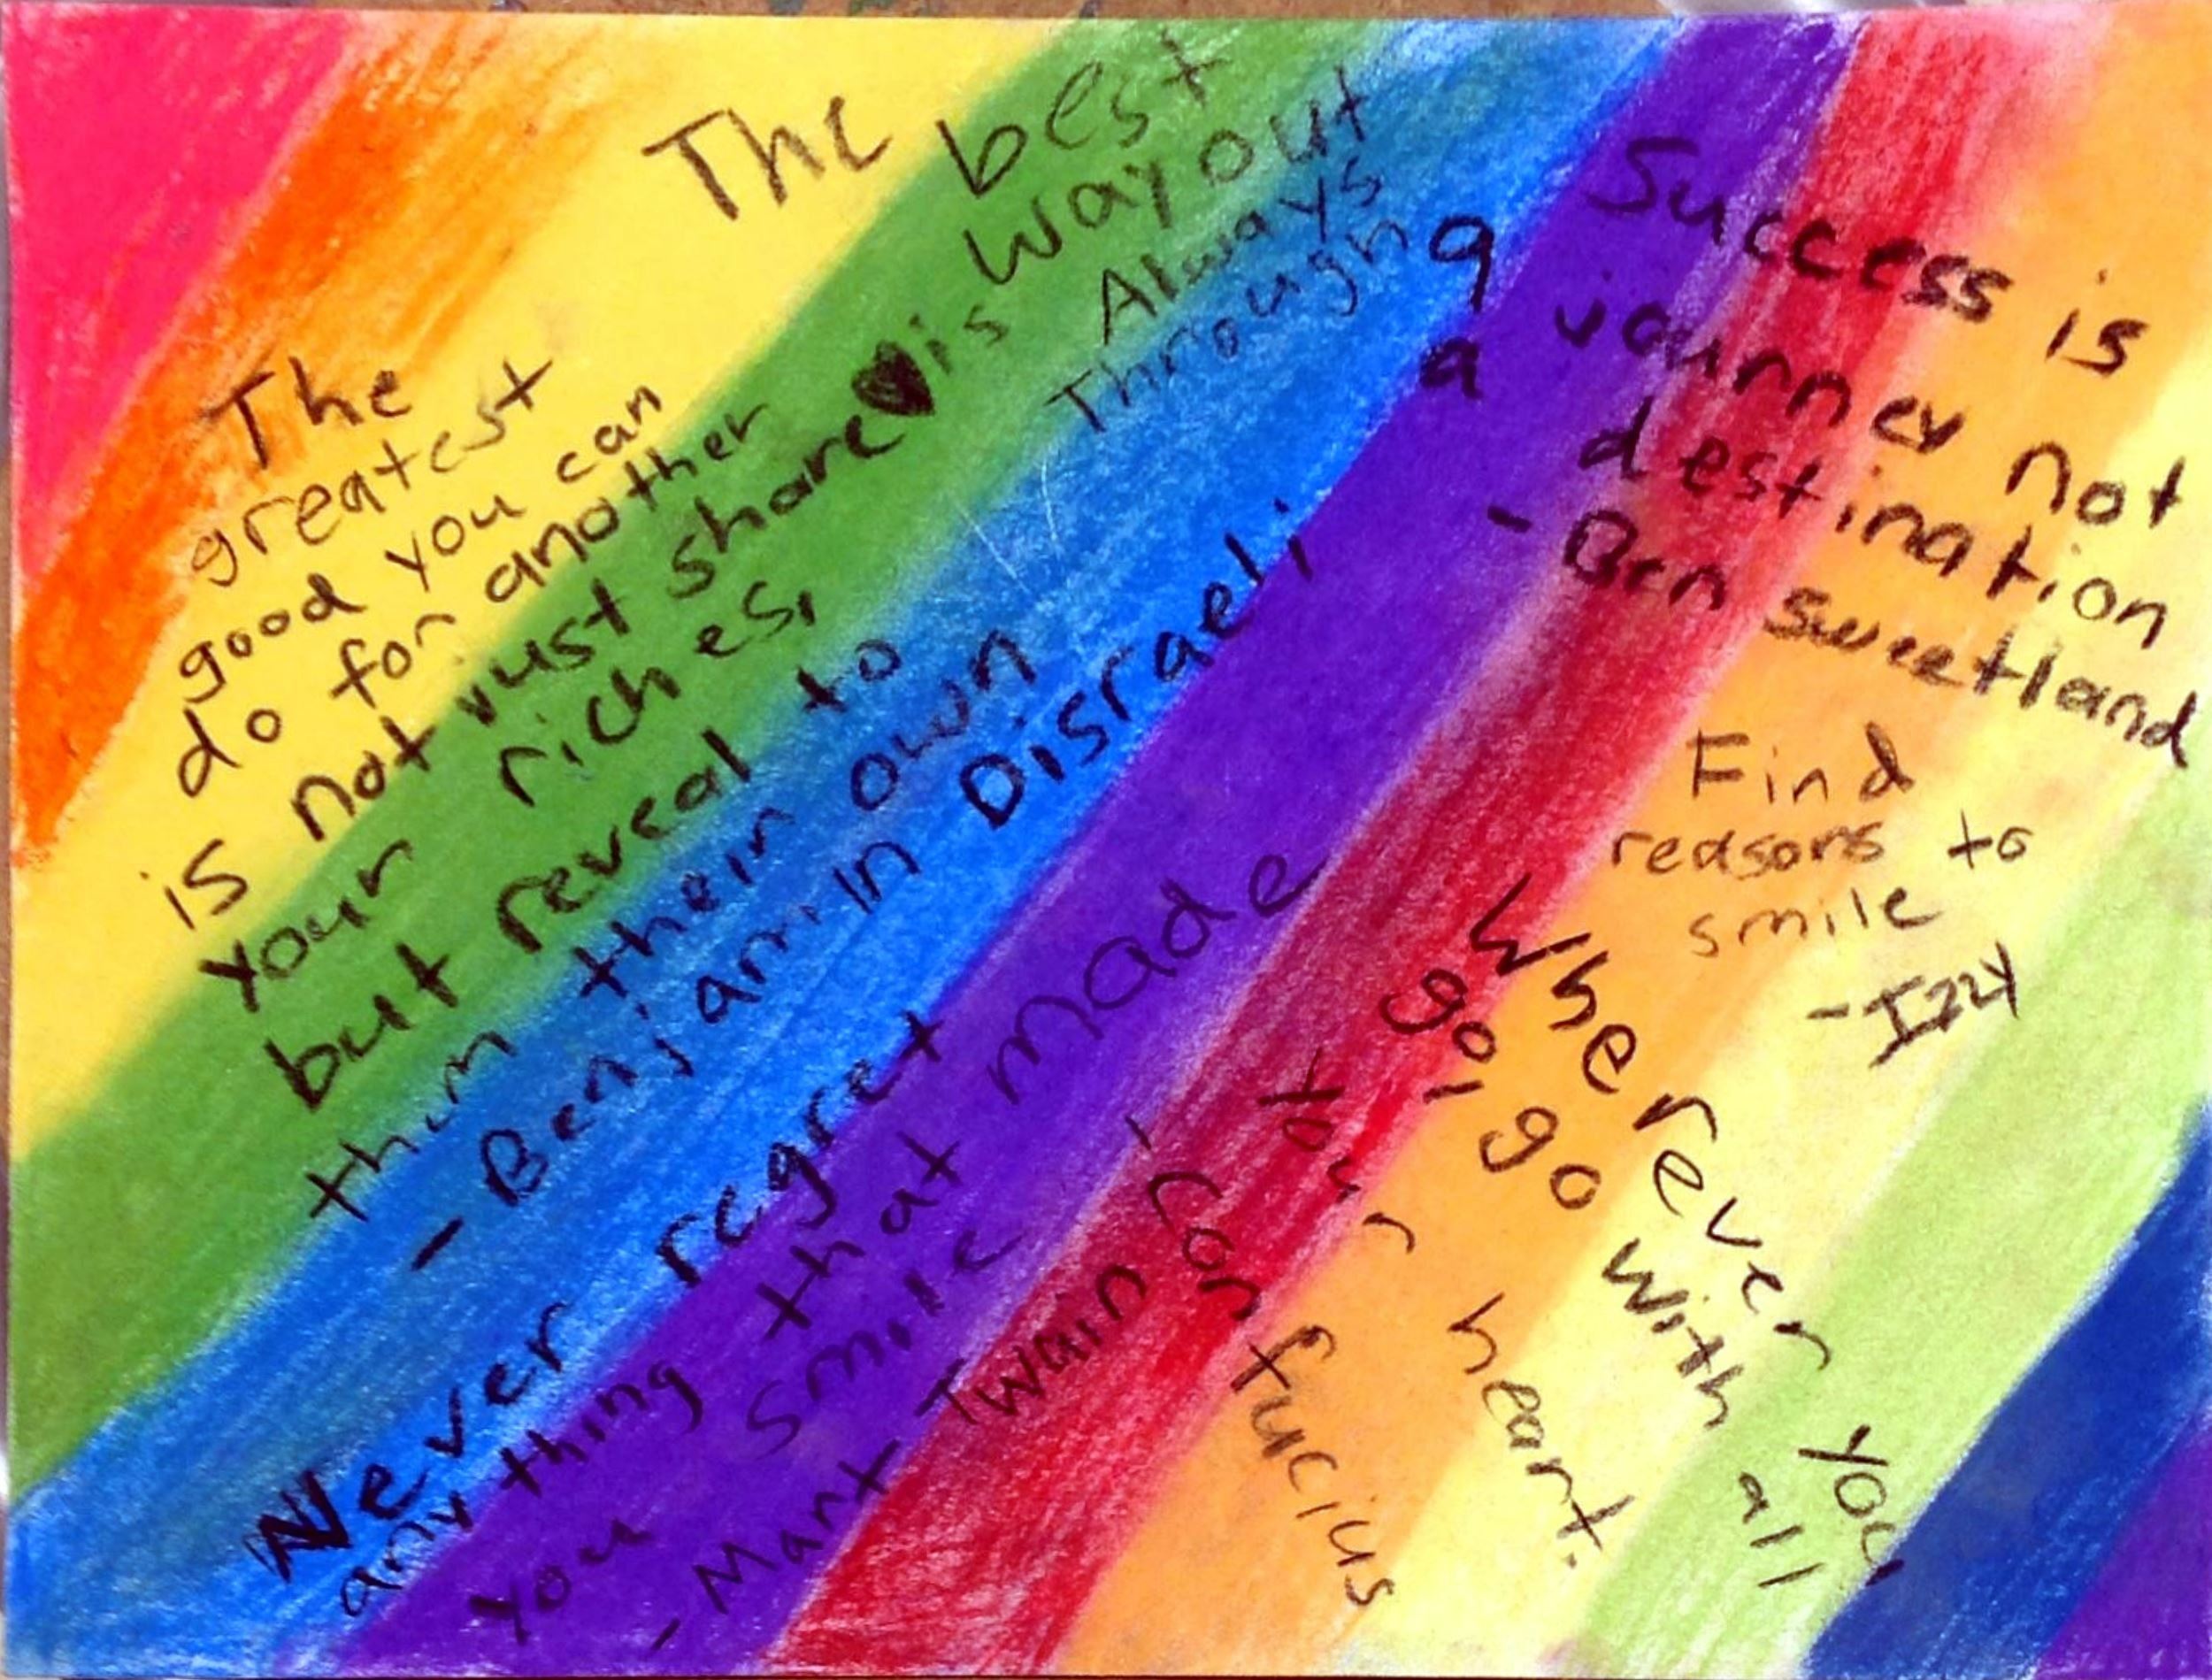 The best
way out
♥ is Always
Through
The
greatest
good you can
do for another
is not just share
your riches,
but reveal to
them their own
- Benjamin Disraeli
Never regret
anything that made
you smile
- Mark Twain
Success is
a journey not
a destination
- Ben sweetland
Find
reasons to
smile
- Izzy
Wherever you
go, go with all
your heart.
- Confucius